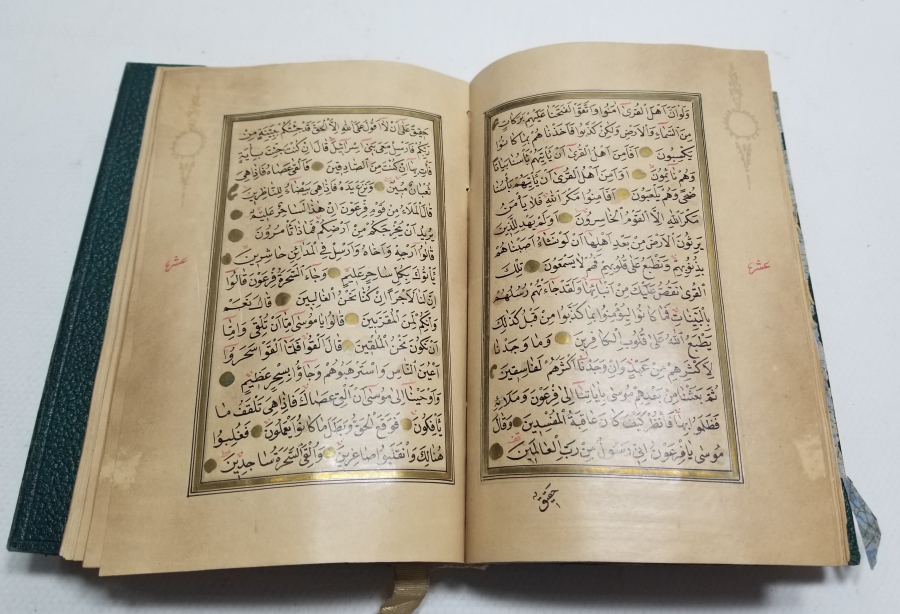 وَلَوْ أَنَّ اَهْلَ الْقُرٰى اٰمَنُوا وَاتَّقَوْا لَفَتَحْنَا عَلَيْهِمْ بَرَكَاتٍ
مِنَ السَّمَاءِ وَالْاَرْضِ وَلٰكِنْ كَذَّبُوا فَاَخَذْنَاهُمْ بِمَا كَانُوا
يَكْسِبُونَ اَفَاَمِنَ اَهْلُ الْقُرٰى اَنْ يَاْتِيَهُمْ بَاْسُنَا بَيَاتًا
وَهُمْ نَائِمُونَ اَوَاَمِنَ اَهْلُ الْقُرٰى اَنْ يَاْتِيَهُمْ بَاْسُنَا
ضُحًى وَهُمْ يَلْعَبُونَ اَفَاَمِنُوا مَكْرَ اللّٰهِ فَلَا يَاْمَنُ
مَكْرَ اللّٰهِ اِلَّا الْقَوْمُ الْخَاسِرُونَ اَوَلَمْ يَهْدِ لِلَّذِينَ
يَرِثُونَ الْاَرْضَ مِنْ بَعْدِ اَهْلِهَا اَنْ لَوْ نَشَاءُ اَصَبْنَاهُمْ
بِذُنُوبِهِمْ وَنَطْبَعُ عَلٰى قُلُوبِهِمْ فَهُمْ لَا يَسْمَعُونَ تِلْكَ
الْقُرٰى نَقُصُّ عَلَيْكَ مِنْ اَنْبَائِهَا وَلَقَدْ جَاءَتْهُمْ رُسُلُهُمْ
بِالْبَيِّنَاتِ فَمَا كَانُوا لِيُؤْمِنُوا بِمَا كَذَّبُوا مِنْ قَبْلُ كَذٰلِكَ
يَطْبَعُ اللّٰهُ عَلٰى قُلُوبِ الْكَافِرِينَ وَمَا وَجَدْنَا
لِاَكْثَرِهِمْ مِنْ عَهْدٍ وَاِنْ وَجَدْنَا اَكْثَرَهُمْ لَفَاسِقِينَ
ثُمَّ بَعَثْنَا مِنْ بَعْدِهِمْ مُوسٰى بِاٰيَاتِنَا اِلٰى فِرْعَوْنَ وَمَلَائِهِ
فَظَلَمُوا بِهَا فَانْظُرْ كَيْفَ كَانَ عَاقِبَةُ الْمُفْسِدِينَ وَقَالَ
مُوسٰى يَا فِرْعَوْنُ اِنِّي رَسُولٌ مِنْ رَبِّ الْعَالَمِينَ
حَقِيقٌ
عشر
حَقِيقٌ عَلٰى اَنْ لَا اَقُولَ عَلَى اللّٰهِ اِلَّا الْحَقَّ قَدْ جِئْتُكُمْ بِبَيِّنَةٍ مِنْ
رَبِّكُمْ فَاَرْسِلْ مَعِيَ بَنِي اِسْرَائِيلَ قَالَ اِنْ كُنْتَ جِئْتَ بِاٰيَةٍ
فَاْتِ بِهَا اِنْ كُنْتَ مِنَ الصَّادِقِينَ فَاَلْقٰى عَصَاهُ فَاِذَا هِيَ
ثُعْبَانٌ مُبِينٌ وَنَزَعَ يَدَهُ فَاِذَا هِيَ بَيْضَاءُ لِلنَّاظِرِينَ
قَالَ الْمَلَاُ مِنْ قَوْمِ فِرْعَوْنَ اِنَّ هٰذَا لَسَاحِرٌ عَلِيمٌ
يُرِيدُ اَنْ يُخْرِجَكُمْ مِنْ اَرْضِكُمْ فَمَاذَا تَاْمُرُونَ
قَالُوا اَرْجِهْ وَاَخَاهُ وَاَرْسِلْ فِي الْمَدَائِنِ حَاشِرِينَ
يَاْتُوكَ بِكُلِّ سَاحِرٍ عَلِيمٍ وَجَاءَ السَّحَرَةُ فِرْعَوْنَ قَالُوا
اِنَّ لَنَا لَاَجْرًا اِنْ كُنَّا نَحْنُ الْغَالِبِينَ قَالَ نَعَمْ
وَاِنَّكُمْ لَمِنَ الْمُقَرَّبِينَ قَالُوا يَا مُوسٰى اِمَّا اَنْ تُلْقِيَ وَاِمَّا
اَنْ نَكُونَ نَحْنُ الْمُلْقِينَ قَالَ اَلْقُوا فَلَمَّا اَلْقَوْا سَحَرُوا
اَعْيُنَ النَّاسِ وَاسْتَرْهَبُوهُمْ وَجَاؤُا بِسِحْرٍ عَظِيمٍ
وَاَوْحَيْنَا اِلٰى مُوسٰى اَنْ اَلْقِ عَصَاكَ فَاِذَا هِيَ تَلْقَفُ مَا
يَاْفِكُونَ فَوَقَعَ الْحَقُّ وَبَطَلَ مَا كَانُوا يَعْمَلُونَ فَغُلِبُوا
هُنَالِكَ وَانْقَلَبُوا صَاغِرِينَ وَاُلْقِيَ السَّحَرَةُ سَاجِدِينَ
عشر